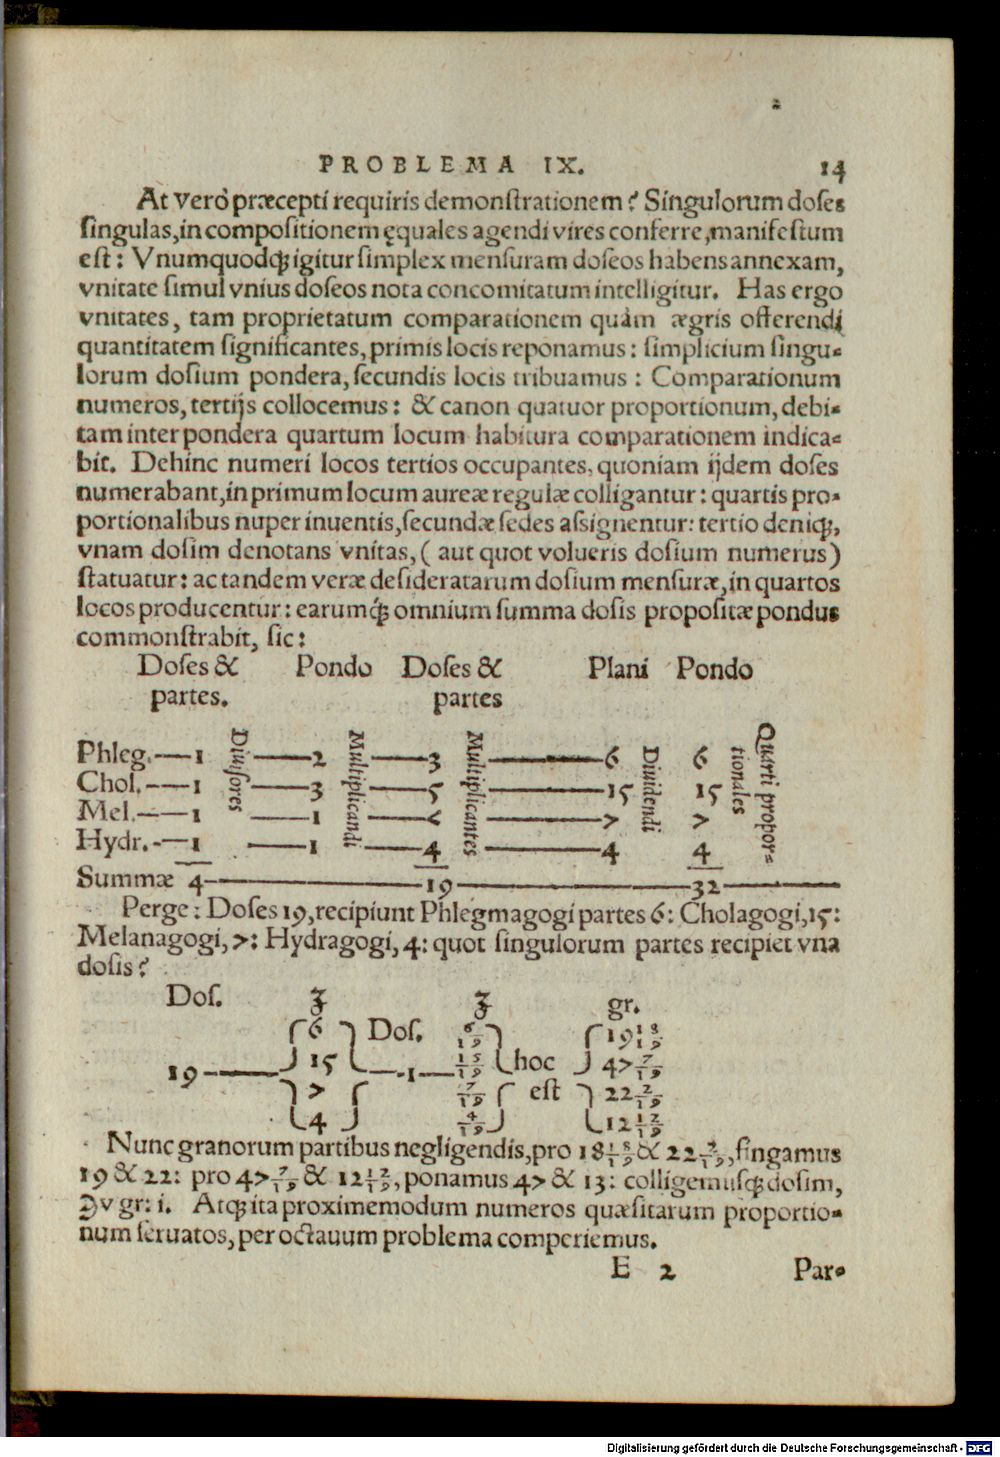 PROBLEMA IX. 14
At verò præcepti requiris demonſtrationem? Singulorum doſes
ſingulas, in compoſitionem ęquales agendi vires conferre, manifeſtum
eſt: Vnumquodqꝫ igitur ſimplex menſuram doſeos habens annexam,
vnitate ſimul vnius doſeos nota concomitatum intelligitur. Has ergo
vnitates, tam proprietatum comparationem quàm ægris offerendi
quantitatem ſignificantes, primis locis reponamus: ſimplicium ſingu-
lorum doſium pondera, ſecundis locis tribuamus: Comparationum
numeros, tertijs collocemus: & canon quatuor proportionum, debi-
tam inter pondera quartum locum habitura comparationem indica-
bit. Dehinc numeri locos tertios occupantes, quoniam ijdem doſes
numerabant, in primum locum aureæ regulæ colligantur: quartis pro-
portionalibus nuper inuentis, ſecundæ ſedes aſsignentur: tertio deniqꝫ,
vnam doſim denotans vnitas, (aut quot volueris doſium numerus)
ſtatuatur: ac tandem veræ deſideratarum doſium menſuræ, in quartos
locos producentur: earumqꝫ́ omnium ſumma doſis propoſitæ pondus
commonſtrabit, ſic:
Doſes & Pondo Doſes & Plani Pondo
partes. partes
Phleg.—1 Diuiſores —2 Multiplicandi —3 Multiplicantes —6 Diuidendi 6 Quarti propor-
Chol.—1 —3 —5 —15 15 tionales
Mel.—1 —1 —7 —7 7
Hydr.—1 —1 —4 —4 4
Summæ 4—19—32—
Perge: Doſes 19, recipiunt Phlegmagogi partes 6: Cholagogi, 15:
Melanagogi, 7: Hydragogi, 4: quot ſingulorum partes recipiet vna
doſis?
Doſ. ʒ ʒ gr.
6 Doſ. 6/19 19 18/19
19— 15 —1— 15/19 hoc 47 7/19
7 7/19 eſt 22 2/19
4 4/19 12 12/19
Nunc granorum partibus negligendis, pro 18 18/19 & 22 2/19, fingamus
19 & 22: pro 47 7/19 & 12 12/19, ponamus 47 & 13: colligemuſqꝫ doſim,
ʒv gr: i. Atqꝫ ita proximemodum numeros quæſitarum proportio-
num ſeruatos, per octauum problema comperiemus.
E 2 Par-
Digitalisierung gefördert durch die Deutsche Forschungsgemeinschaft - DFG